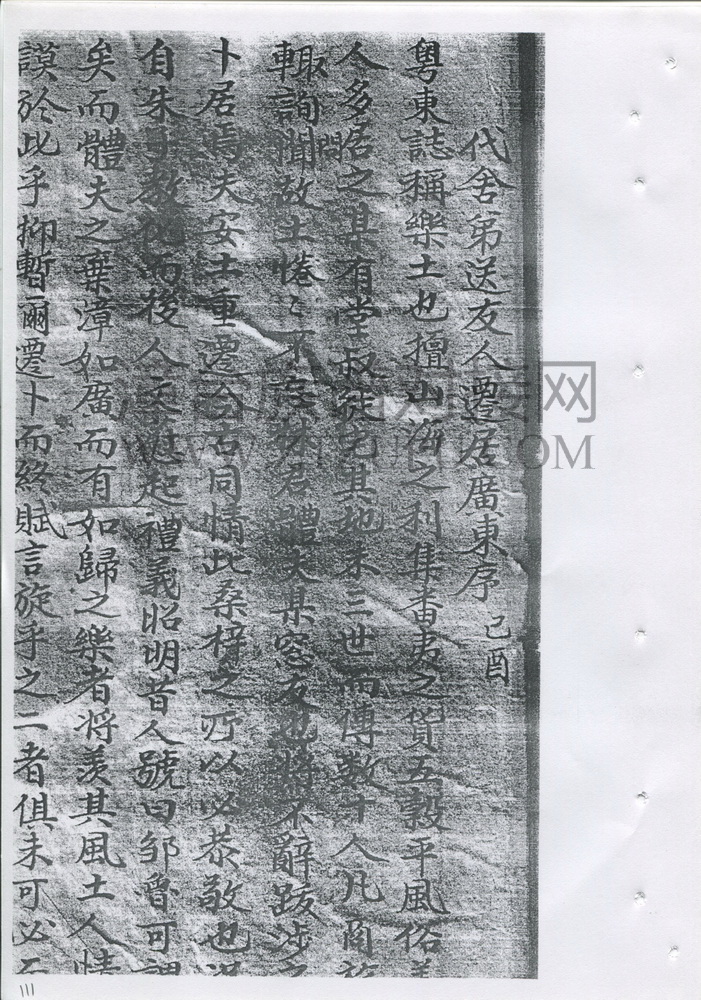 代舍弟送友人遷居廣東序 己酉
粵東誌稱樂土也擅山海之利集番夷之貨五穀平風俗美
人多居之某有堂叔徙宅其地未三世而傳數十人凡商於
輒詢問故土惓〻不忘林君體夫某窓友也將不辭跋涉之
卜居焉夫安土重遷今古同情此桑梓之所以必恭敬也況
自朱子教化而後人文蔚起禮義昭明昔人號曰邹魯可謂
矣而體夫之棄漳如廣而有如歸之樂者將羨其風土人情
謨於此乎抑暫爾遷卜而終賦言旋乎之二者俱未可必而
111